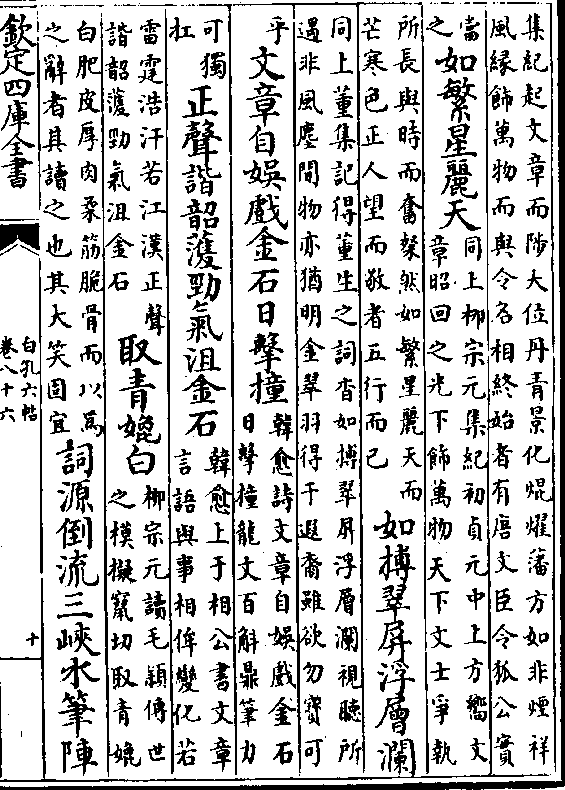 集紀起文章而陟大位丹青景化焜燿藩方如非煙祥
風緣飾萬物而與令名相終始者有唐文臣令狐公實
當
之
如繁星麗天
同上柳宗元集紀初貞元中上方嚮文
章昭回之光下飾萬物天下文士爭執
所長與時而奮粲然如繁星麗天而
芒寒色正人望而敬者五行而已
如搏翠屏浮層瀾
同上董集記得董生之詞杳如搏翠屏浮層瀾視聽所
遇非風塵間物亦猶明金翠羽得于遐裔雖欲勿寶可
乎
文章自娛戲金石日擊撞
韓愈詩文章自娛戲金石
日擊撞龍文百斛鼎筆力
可獨
扛
正聲諧韶頀勁氣沮金石
韓愈上于相公書文章
言語與事相侔變化若
雷霆浩汗若江漢正聲
諧韶頀勁氣沮金石
取青媲白
柳宗元讀毛穎傳世
之模擬竄切取青媲
白肥皮厚肉柔筋脆骨而以爲
之辭者其讀之也其大笑固宜
詞源倒流三峽水筆陣
欽定四庫全書
白孔六帖
卷八十六
十